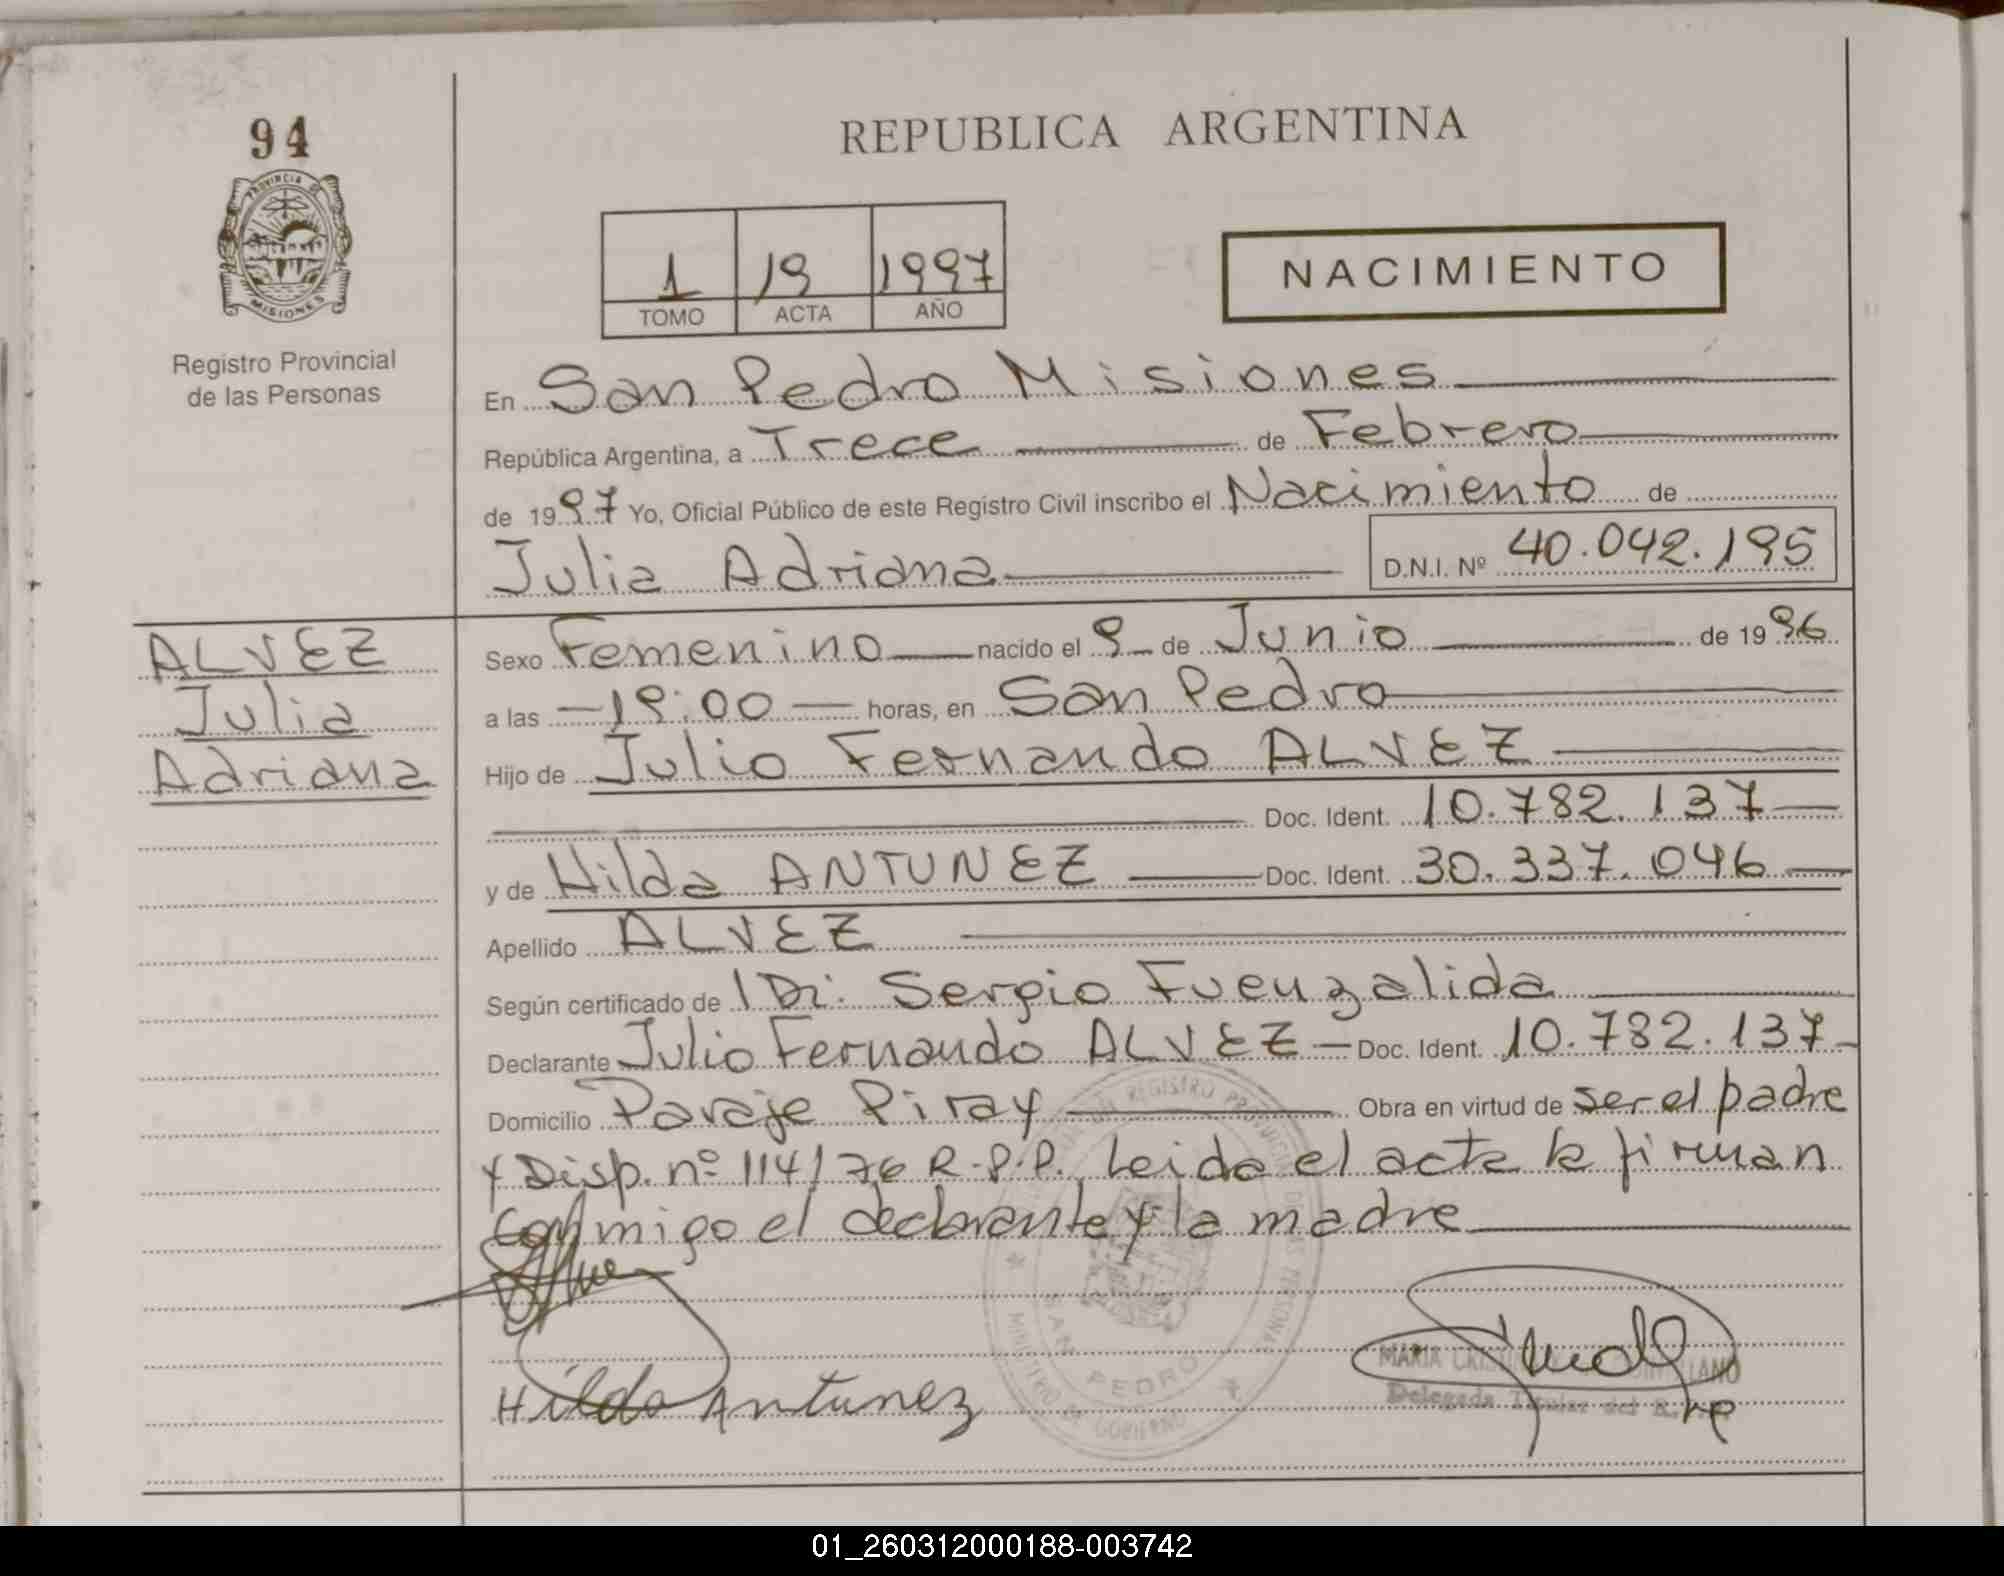 94
PROVINCIA DE
MISIONES
Registro Provincial
de las Personas
REPUBLICA ARGENTINA
1 19 1997
TOMO ACTA AÑO
NACIMIENTO
En San Pedro Misiones
República Argentina, a Trece de Febrero
de 1997 Yo, Oficial Público de este Registro Civil inscribo el Nacimiento de
Julia Adriana D.N.I. Nº 40.042.195
ALVEZ
Julia
Adriana
Sexo Femenino nacido el 9 de Junio de 1996
a las 19:00 horas, en San Pedro
Hijo de Julio Fernando ALVEZ
Doc. Ident. 10.782.137
y de Hilda ANTUNEZ Doc. Ident. 30.337.046
Apellido ALVEZ
Según certificado de Sergio Fuenzalida
Declarante Julio Fernando ALVEZ Doc. Ident. 10.782.137
Domicilio Paraje Piray Obra en virtud de ser el padre
y Disp. nº 114/76 R.P.P. Leida el acta la firman
conmigo el declarante y la madre
Hilda Antunez
REGISTRO PROVINCIAL DE LAS PERSONAS
SAN PEDRO
MINISTERIO DE GOBIERNO
MARIA
Delegada Titular del R.
01_260312000188-003742